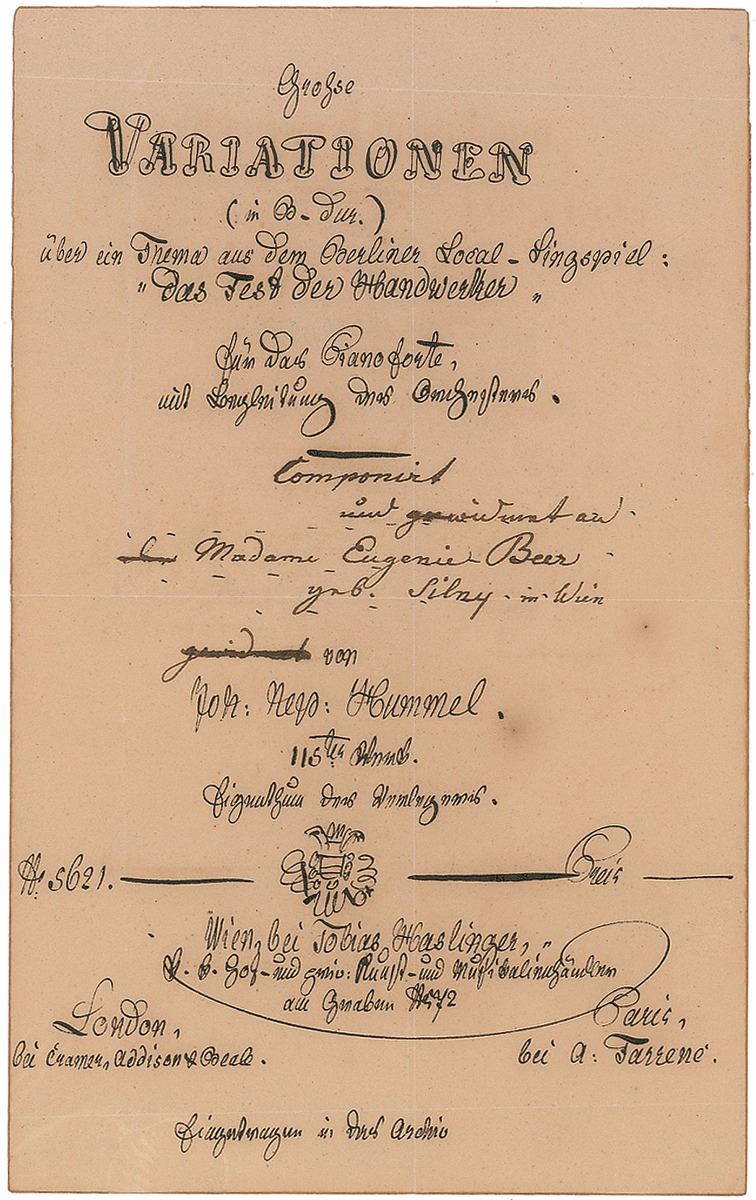 Grosse
VARIATIONEN
(in B-dur.)
über ein Thema aus dem Berliner Local-Singspiel:
"das Fest der Handwerker"
für das Pianoforte,
mit Begleitung des Orchesters.
Componirt
und gewidmet an
Madame Eugenie Beer
geb. Silny in Wien
gewidmet von
Joh: Nep: Hummel.
115tes Werk.
Eigenthum des Verlegers.
№ 5621. Preis
Wien, bei Tobias Haslinger,
k. k. Hof- und priv: Kunst- und Musikalienhändler
am Graben № 572
London, Paris,
bei Cramer, Addison & Beale. bei A: Farrenc.
Eingetragen in das Archiv